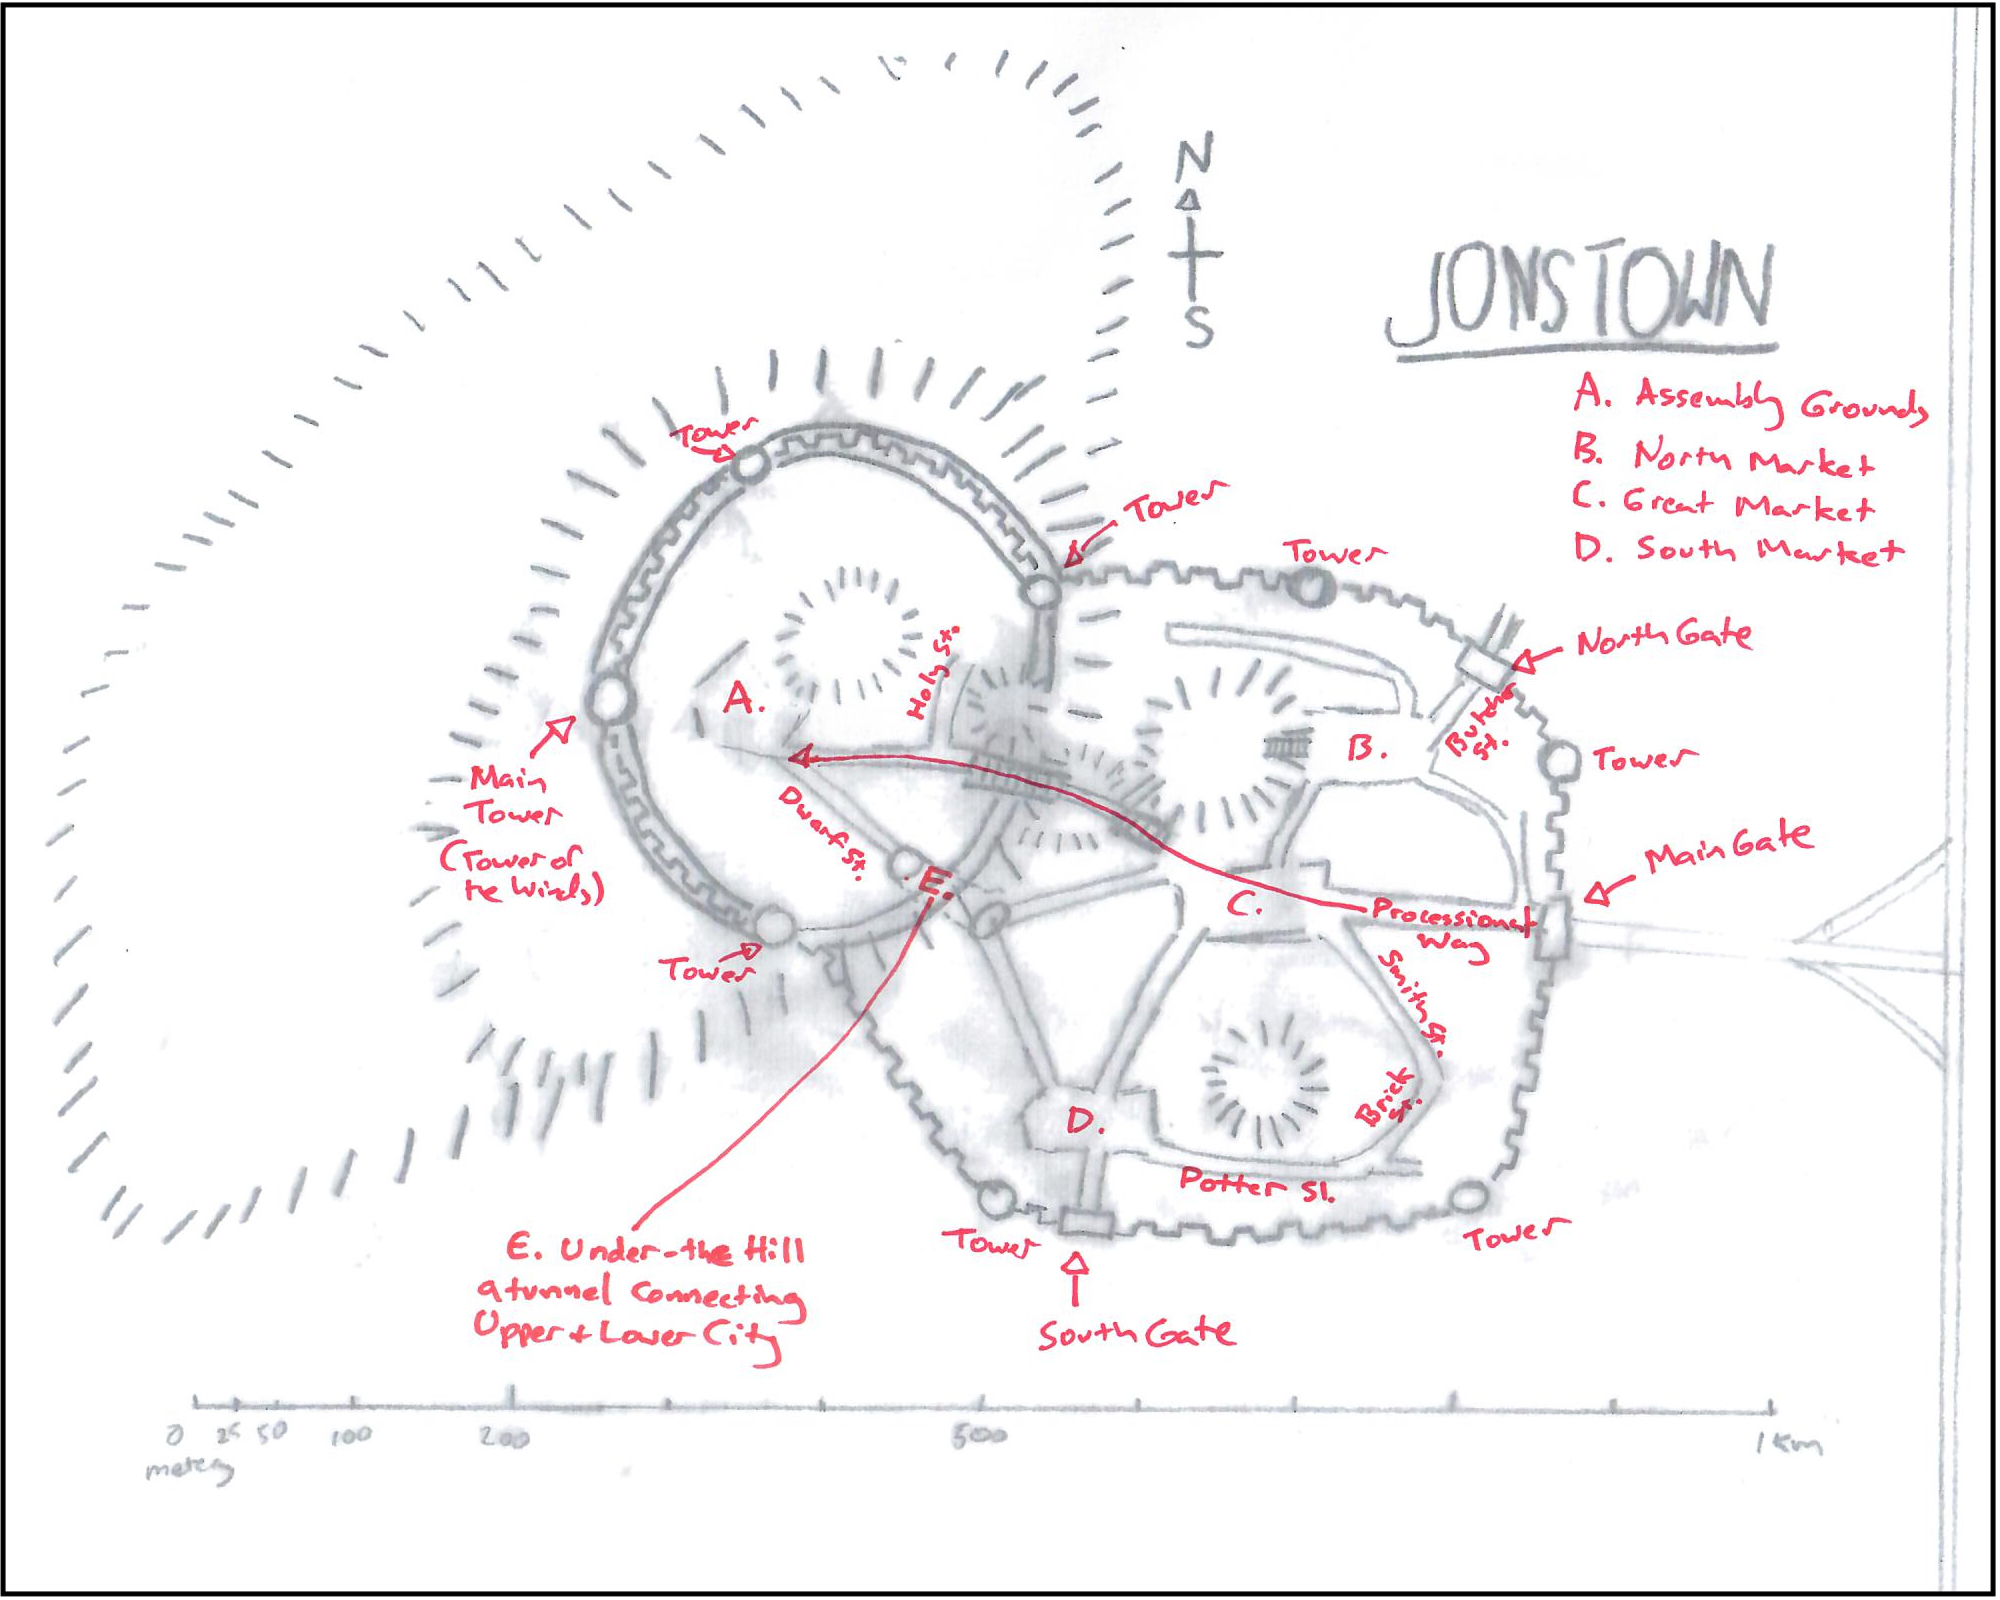 N
S
JONSTOWN
A. Assembly Grounds
B. North Market
C. Great Market
D. South Market
Tower
Tower
Tower
North Gate
Holy St.
A.
B.
St.
Tower
Main
Tower
(Tower of
the Winds)
Dwarf St.
E.
C.
Processional
Way
Main Gate
Smith St.
Tower
Brick
St.
D.
Potter St.
Tower
Tower
South Gate
E. Under-the Hill
a tunnel connecting
Upper + Lower City
0 25 50 100 200 500 1 Km
meters